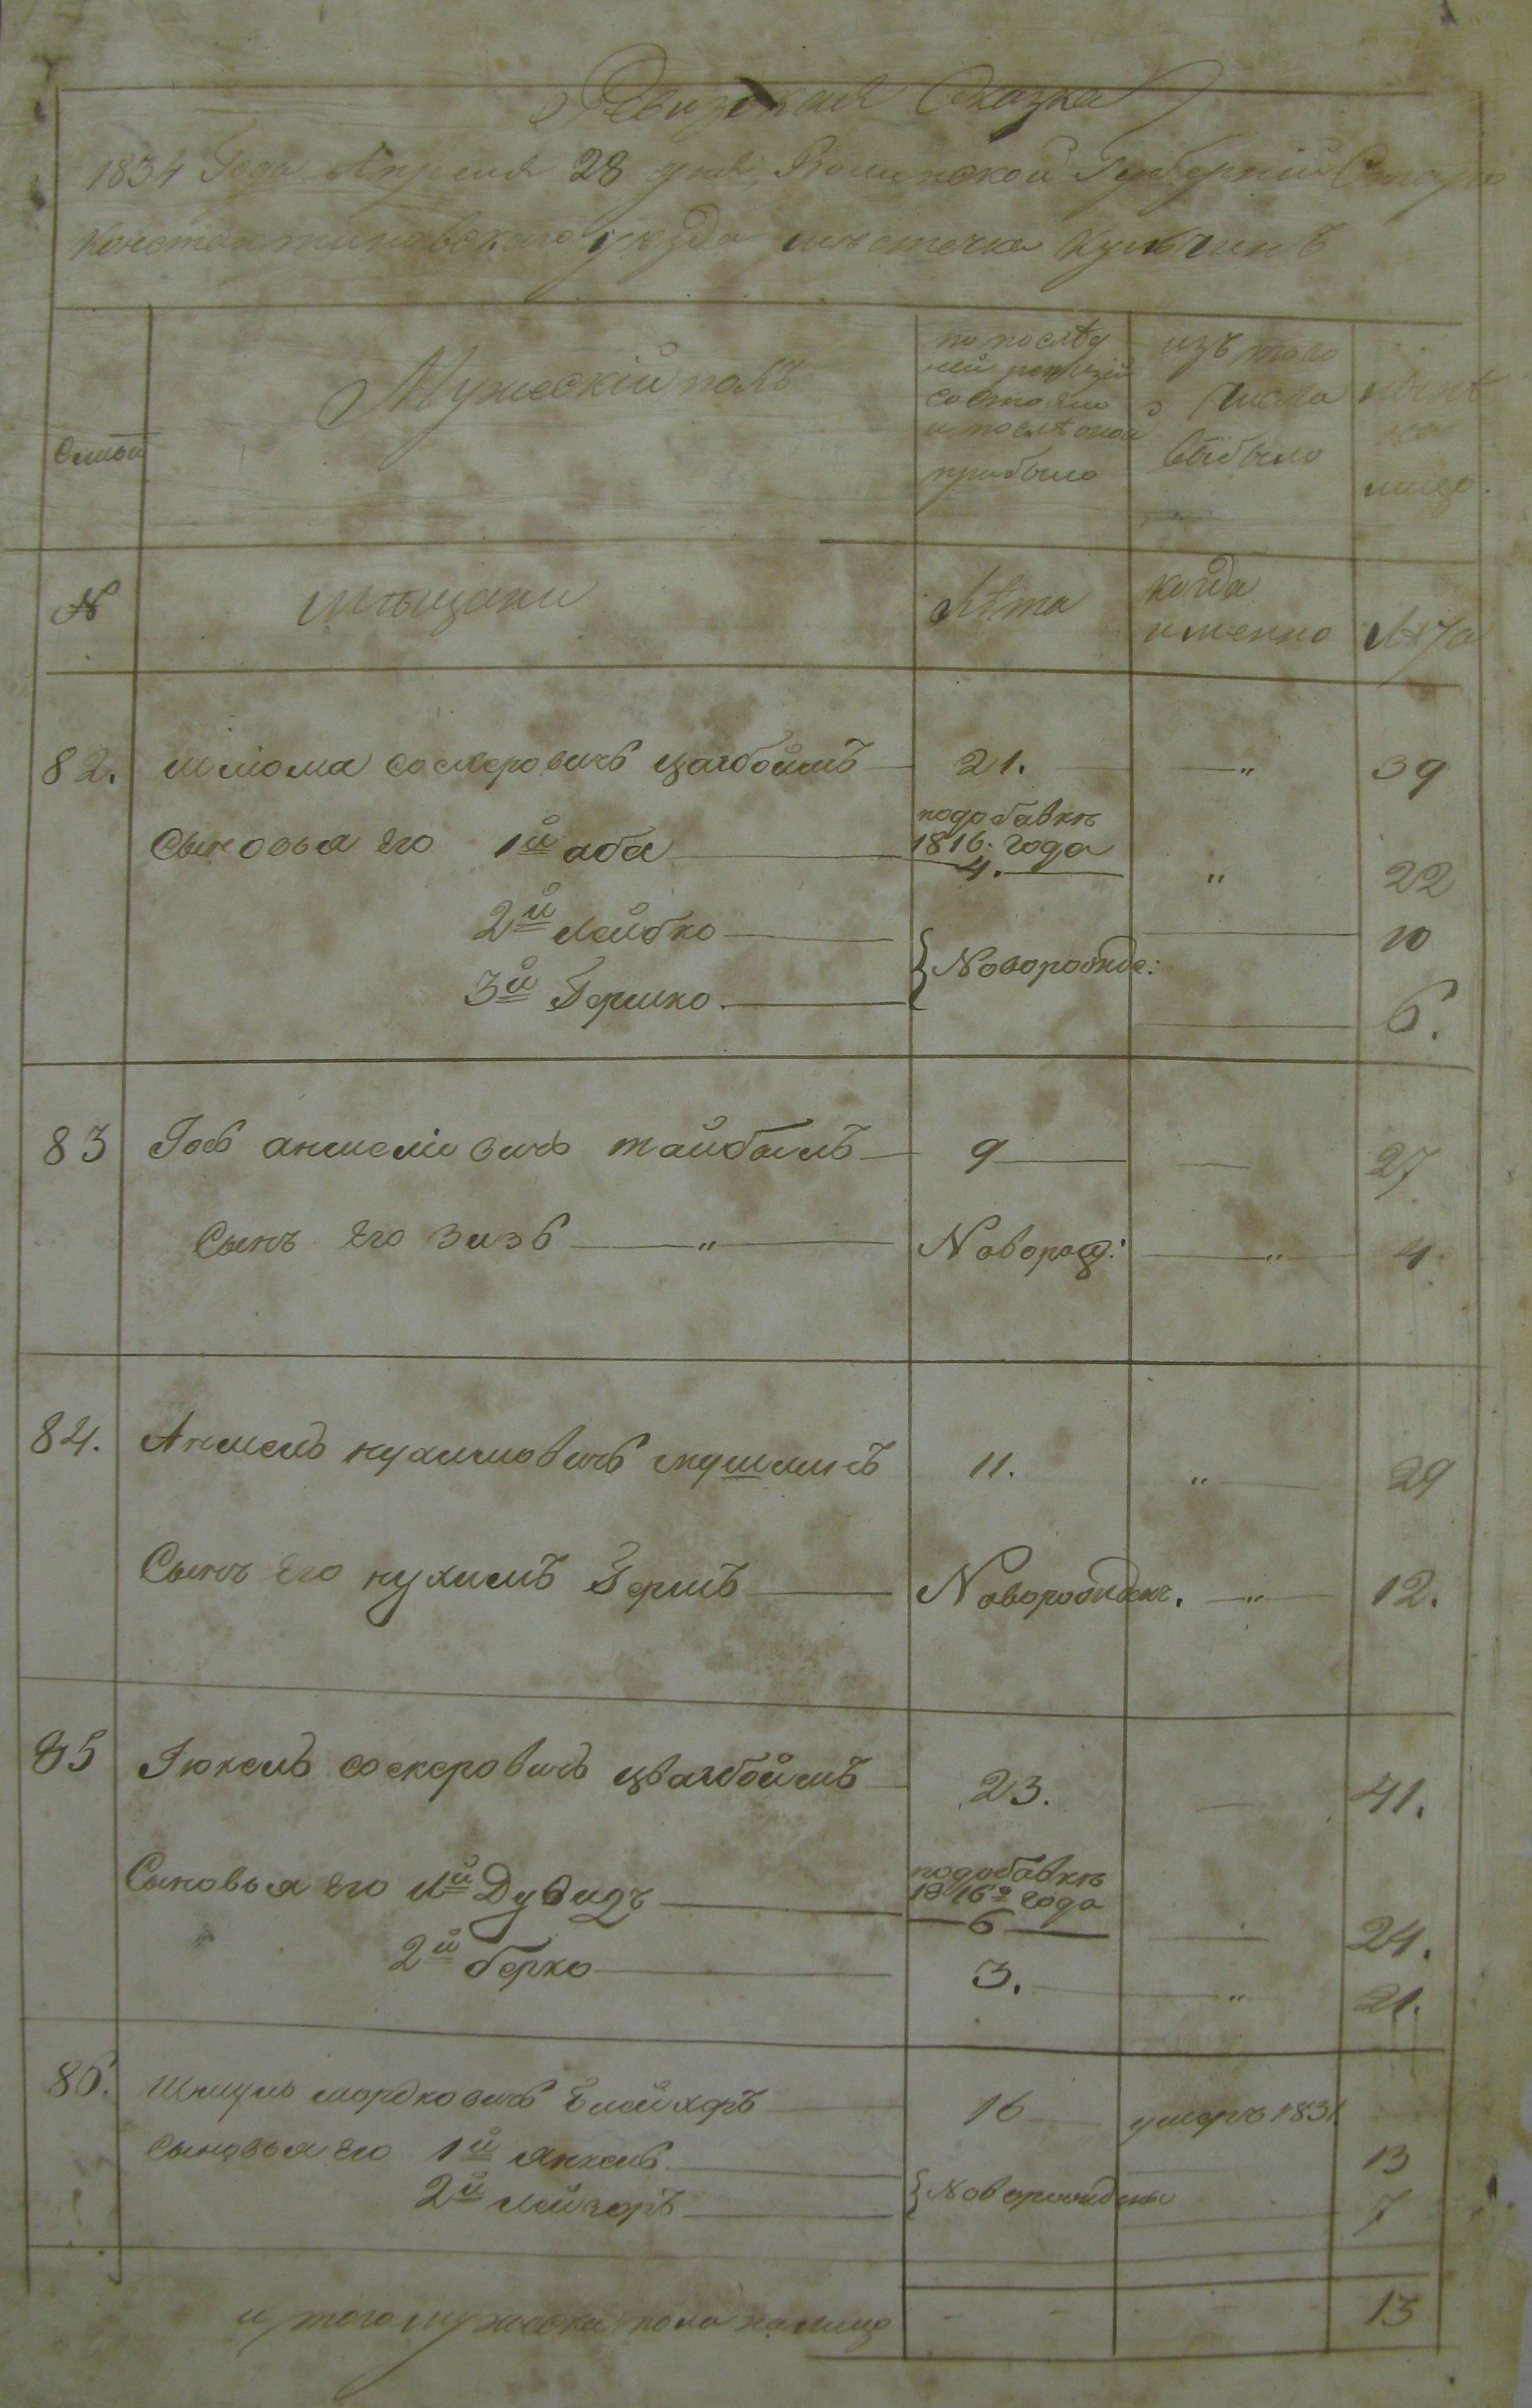 Ревизская Сказка
1834 Года Апреля 28 дня Волынской Губернiи Старо
константиновскаго уезда местечка Кульчинъ
Семьи
Мужескiй полъ
по послѣд
ней ревизiи
состояло
и послѣ оной
прибыло
изъ того
числа
выбыло
нынѣ
на
лицо.
№ мѣщане Лѣта когда
именно Лѣта
82. шлiома соскеровичъ цвагбоймъ 21. — " 39
подобавкѣ
Сыновья Его 1й аба 1816. года
4. " 22
2й Лейбко 10
{ Новорожде:
3й Гершко. 6.
83 Iось аншелiовичъ тайбалъ 9 — 27
Сынъ Его Зизь " Новорож: " 4
84. Аншель нухимовичъ 11. " 29
Сынъ Его нухимъ Гершъ Новорожден. " 12.
85 Iюкель соскеровичъ цвагбоймъ 23. — 41.
подобавкѣ
Сыновья Его 1й Дувидъ 1816о года
6 — 24.
2й берко 3. " 21.
86. Шмуль мордковичъ 16 умеръ 1831
Сыновья Его 1й янкель 13
{ Новорождены
2й Лейзоръ 7
итого мужеска пола налицо 13